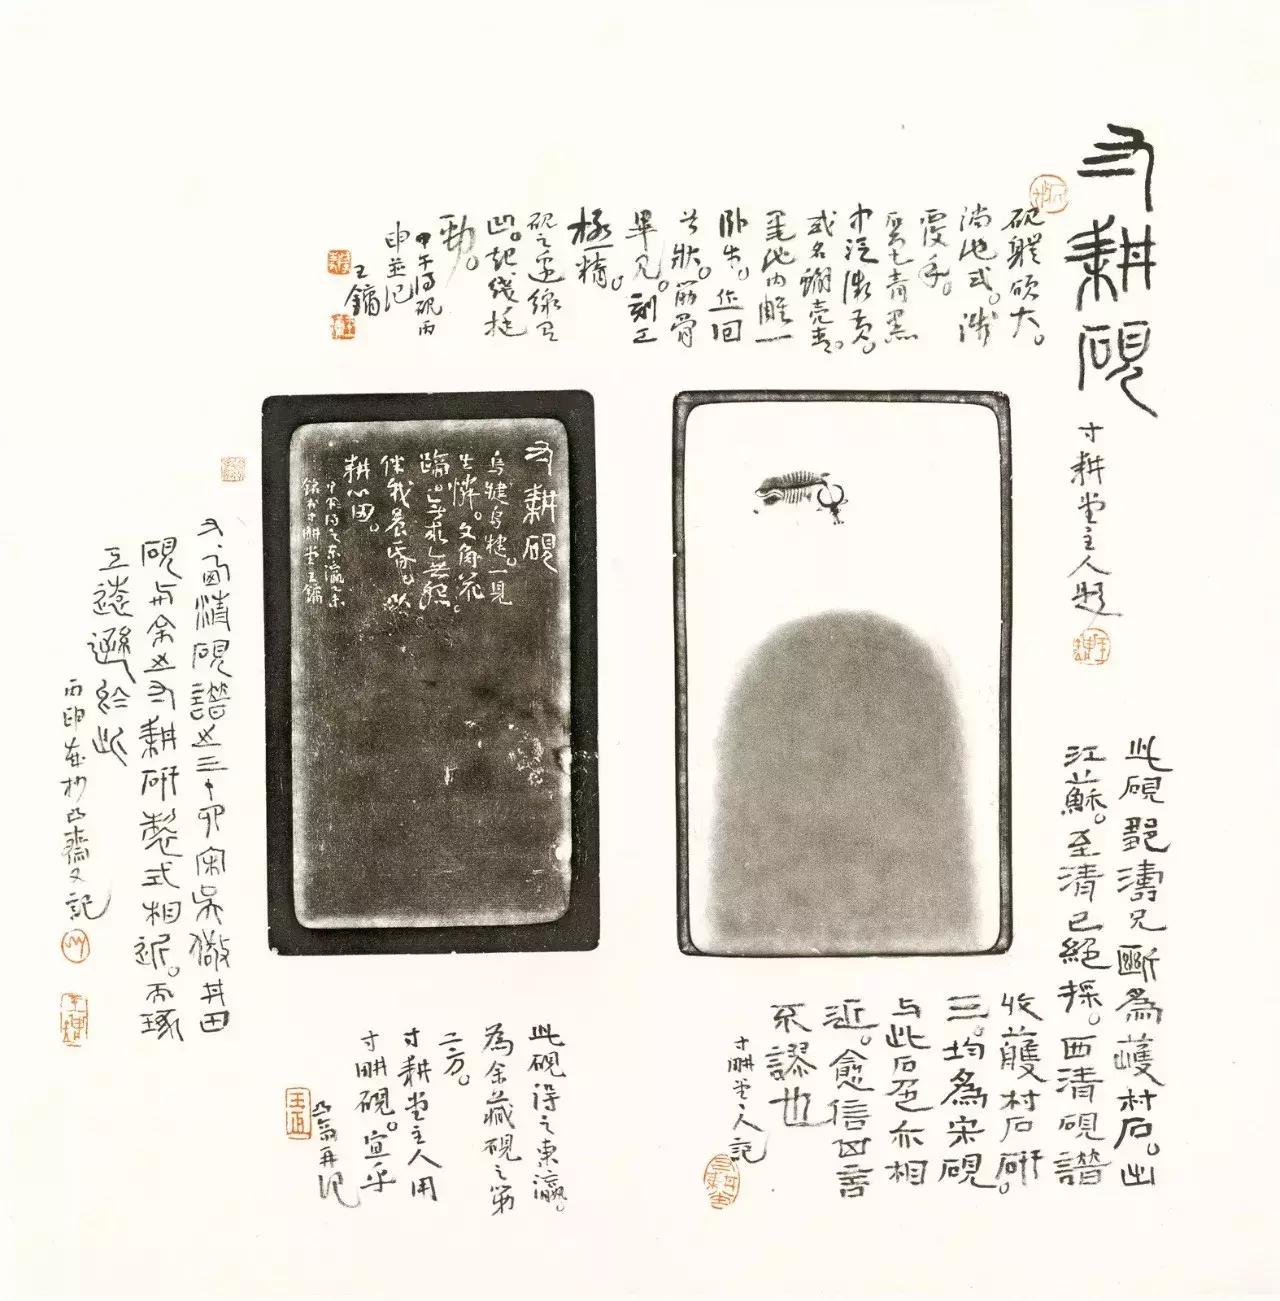 寸耕硯
寸耕堂主人題
硯體碩大。
淌池式。淺
覆手。
青黑
中泛微黃。
或名蟹壳青。
墨池内雕一
卧牛。作回
首狀。筋骨
畢見。刻工
極精。
硯之邊緣
凹。起线挺
勁。
甲午得硯丙
申並記
王鏞
寸耕硯
烏犍烏犍。一見
生憐。文角花
蹄。
伴我晨昏。
耕心田。
得之東瀛
寸畊堂王鏞
此硯濤兄斷為䕶村石。出
江蘇。至清已絕採。西清硯譜
收䕶村石硏。
三。均為宋硯
与此石色亦相
近。愈信其言
不謬也
寸畊堂主人記
此硯得之東瀛。
為余藏硯之第
二方。
寸耕堂主人用
寸畊硯。宜乎
凸翁再記
又。西清硯譜之三十宋吳儆井田
硯与余之寸耕硏製式相近。而琢
工遠遜於此
丙申春杪凸齋又記